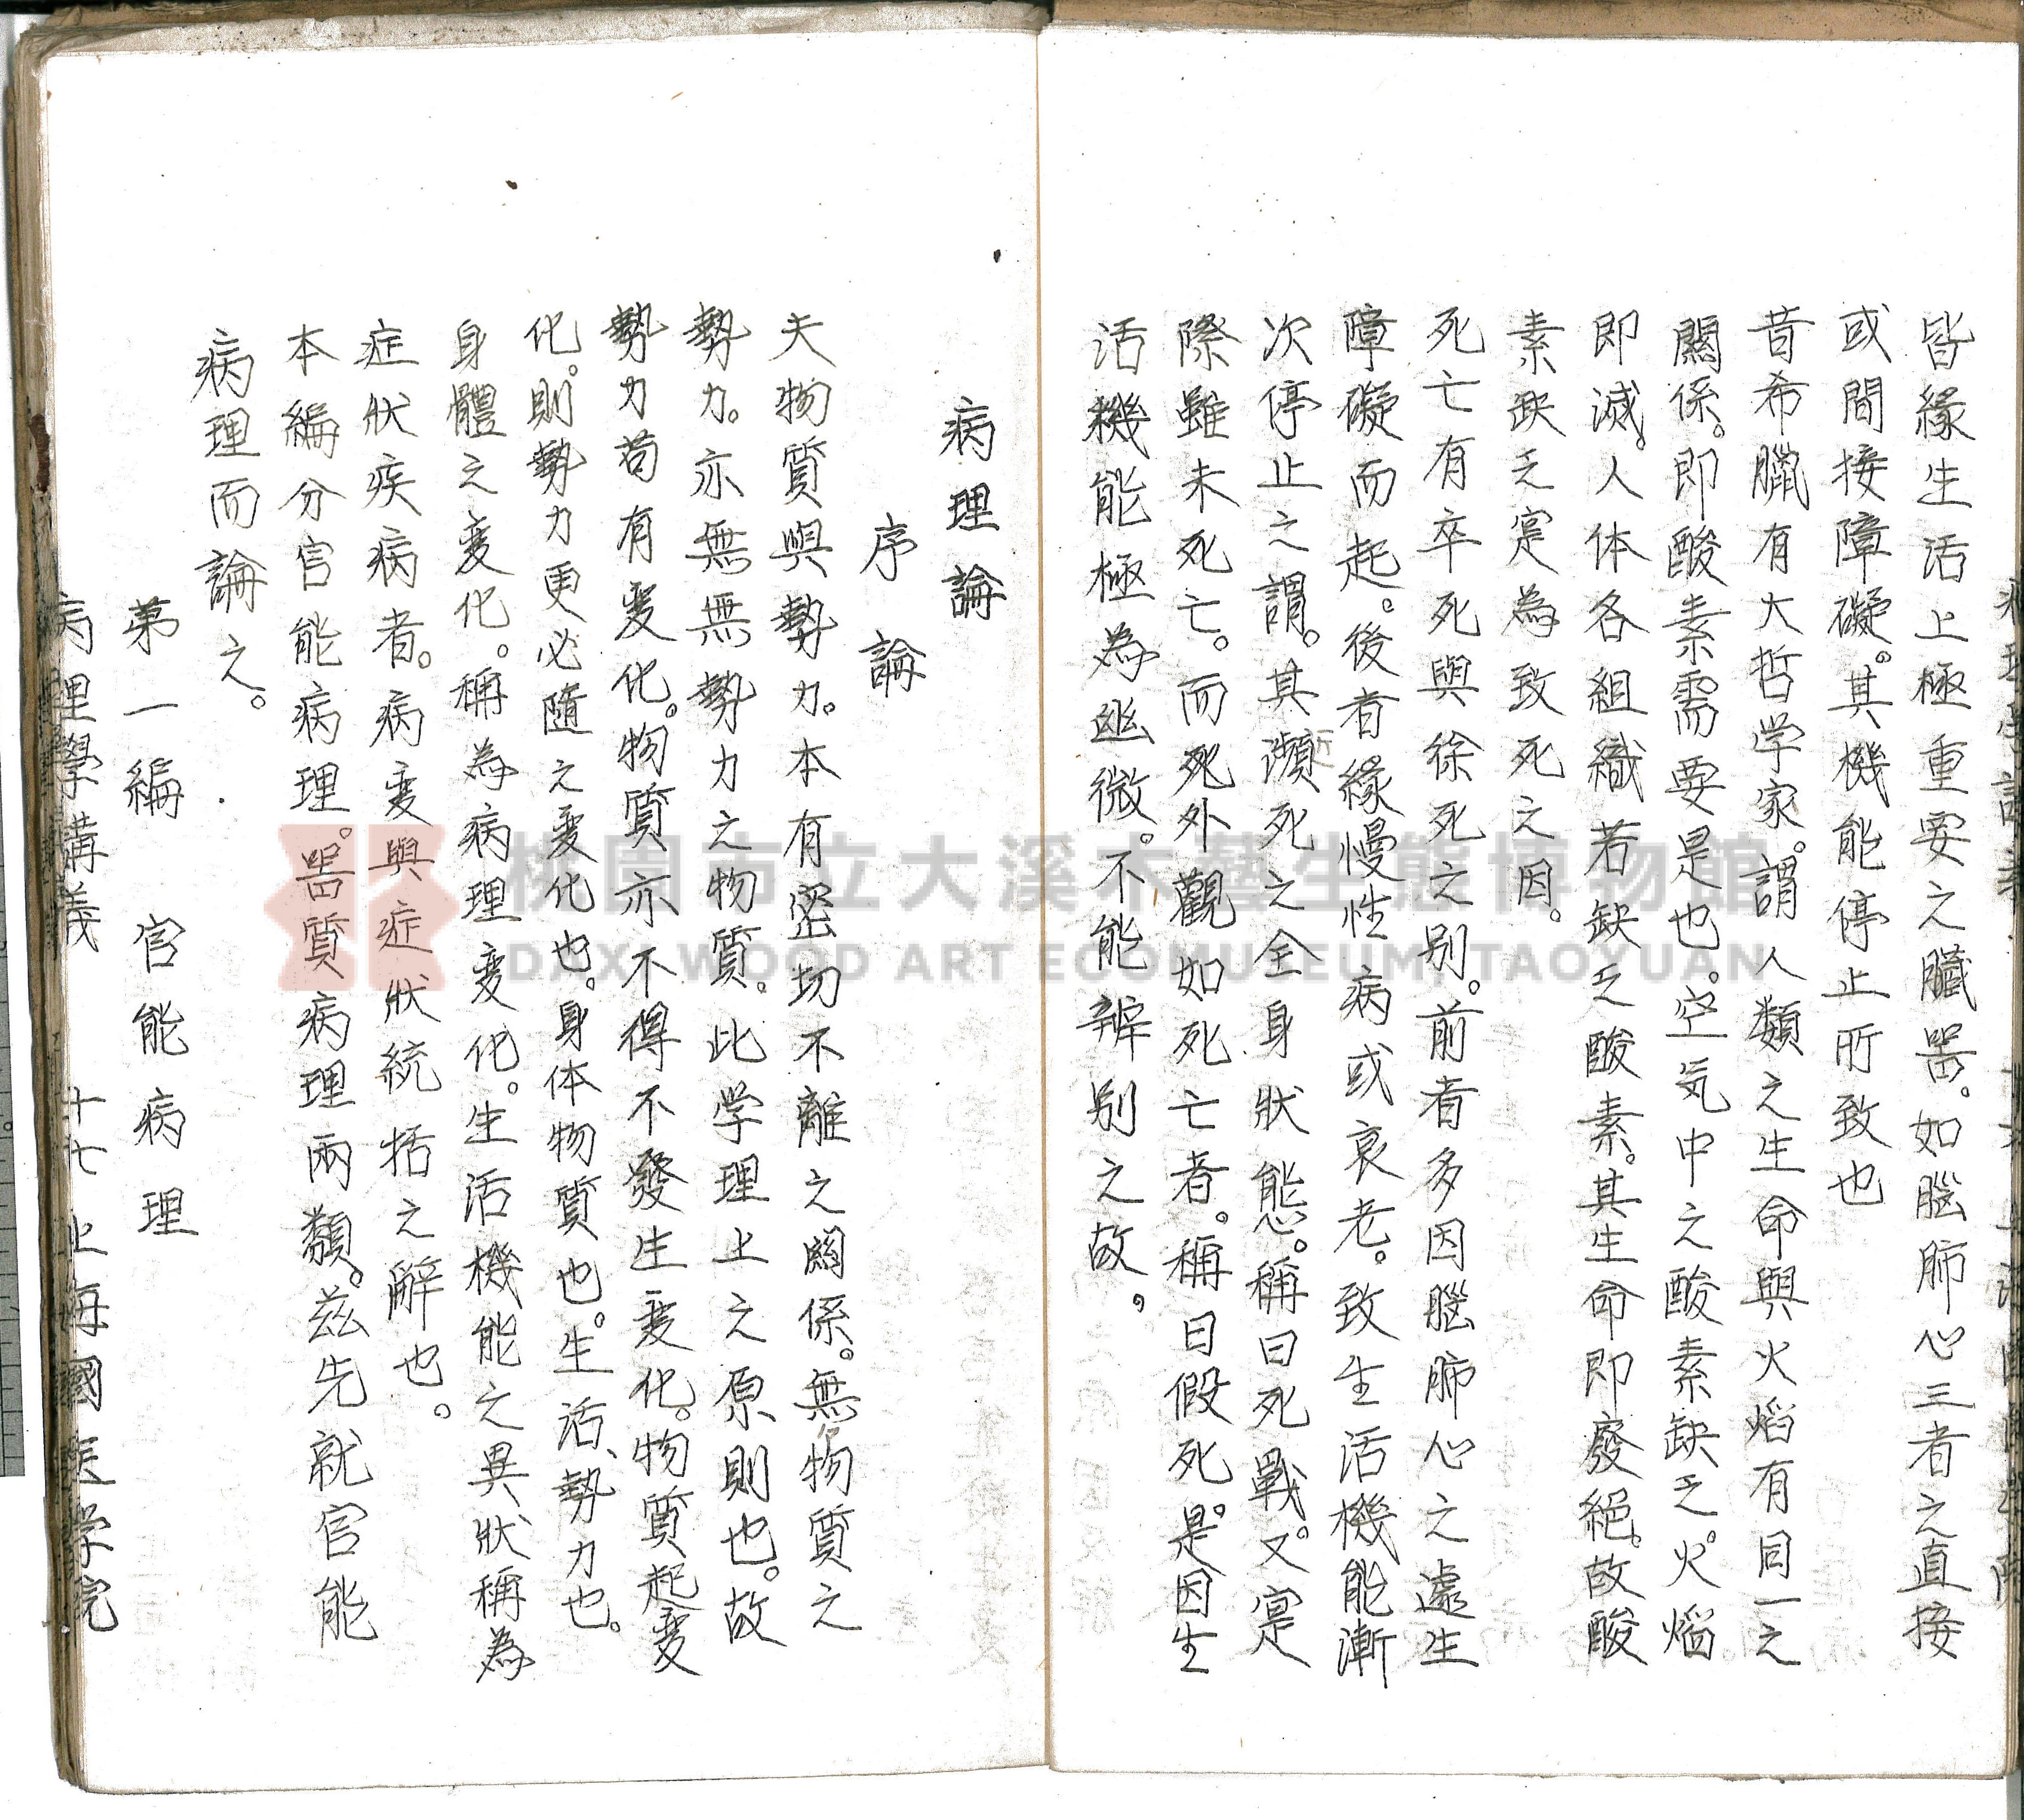 皆緣生活上極重要之臟器。如腦肺心三者之直接
或間接障礙。其機能停止所致也
昔希臘有大哲学家。謂人類之生命與火焰有同一之
關係。即酸素需要是也。空気中之酸素缺乏。火焰
即滅。人体各組織若缺乏酸素。其生命即廢絕。故酸
素缺乏寔為致死之因。
死亡有卒死與徐死之別。前者多因腦肺心之遽生
障礙而起。後者緣慢性病或衰老。致生活機能漸
次停止之謂。其瀕死之全身狀態。稱曰死戰。又寔
際雖未死亡。而死外觀如死亡者。稱曰假死。是因生
活機能極為幽微。不能辨別之故。
病理論
序論
夫物質與勢力。本有密切不離之關係。無物質之
勢力。亦無無勢力之物質。此学理上之原則也。故
勢力苟有変化。物質亦不得不發生変化。物質起変
化。則勢力更必隨之変化也。身体物質也。生活、勢力也。
身體之変化。稱為病理変化。生活機能之異狀稱為
症狀疾病者。病変與症狀統括之解也。
本編分官能病理。器質病理兩類。茲先就官能
病理而論之。
第一編 官能病理
病理學講義 十七 上海國医学院
桃園市立大溪木藝生態博物館
DAXI WOOD ART ECOMUSEUM, TAOYUAN